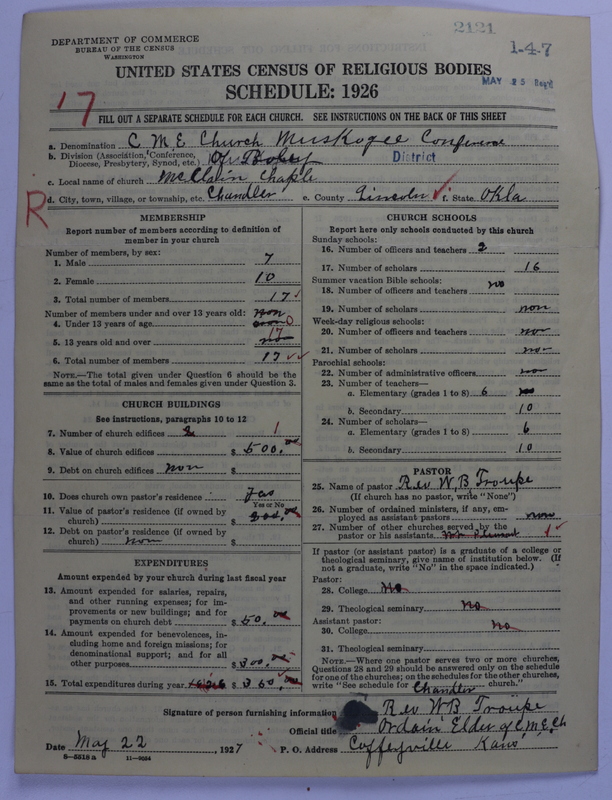 2121
1-4-7
DEPARTMENT OF COMMERCE
BUREAU OF THE CENSUS
WASHINGTON
MAY 25 Rec'd
UNITED STATES CENSUS OF RELIGIOUS BODIES
SCHEDULE: 1926
17
FILL OUT A SEPARATE SCHEDULE FOR EACH CHURCH. SEE INSTRUCTIONS ON THE BACK OF THIS SHEET
a. Denomination C M E Church Muskogee Conference
b. Division (Association, Conference, Diocese, Presbytery, Synod, etc.) District
c. Local name of church McClain Chaple
R
d. City, town, village, or township, etc. Chandler e. County Lincoln f. State Okla
MEMBERSHIP
Report number of members according to definition of
member in your church
Number of members, by sex:
1. Male 7
2. Female 10
3. Total number of members 17
Number of members under and over 13 years old: non
4. Under 13 years of age 0
17
5. 13 years old and over non
6. Total number of members 17
NOTE.—The total given under Question 6 should be the
same as the total of males and females given under Question 3.
CHURCH BUILDINGS
See instructions, paragraphs 10 to 12
7. Number of church edifices 2 1
8. Value of church edifices $ 500.00
9. Debt on church edifices non $
10. Does church own pastor's residence yas
Yes or No
11. Value of pastor's residence (if owned by
church) $ 300.00
12. Debt on pastor's residence (if owned by
church) non $
EXPENDITURES
Amount expended by your church during last fiscal year
13. Amount expended for salaries, repairs,
and other running expenses; for im-
provements or new buildings; and for
payments on church debt $ 50.00
14. Amount expended for benevolences, in-
cluding home and foreign missions; for
denominational support; and for all
other purposes $ 300.00
15. Total expenditures during year $ 350.00
CHURCH SCHOOLS
Report here only schools conducted by this church
Sunday schools:
16. Number of officers and teachers 2
17. Number of scholars 16
Summer vacation Bible schools: no
18. Number of officers and teachers
19. Number of scholars non
Week-day religious schools:
20. Number of officers and teachers non
21. Number of scholars non
Parochial schools:
22. Number of administrative officers non
23. Number of teachers—
a. Elementary (grades 1 to 8) 6
b. Secondary 10
24. Number of scholars—
a. Elementary (grades 1 to 8) 6
b. Secondary 10
PASTOR
25. Name of pastor Rev W, B Troupe
(If church has no pastor, write "None")
26. Number of ordained ministers, if any, em-
ployed as assistant pastors non
27. Number of other churches served by the
pastor or his assistants 1
If pastor (or assistant pastor) is a graduate of a college or
theological seminary, give name of institution below. (If
not a graduate, write "No" in the space indicated.)
Pastor:
28. College No
29. Theological seminary No
Assistant pastor:
30. College No
31. Theological seminary
NOTE.—Where one pastor serves two or more churches,
Questions 28 and 29 should be answered only on the schedule
for one of the churches; on the schedules for the other churches,
write "See schedule for Chandler church."
Signature of person furnishing information Rev WB Troupe
Official title Ordain Elder of C.M.E. Ch
Date May 22, 1927 P. O. Address Coffeyville Kans
8-5518 a 11-9054